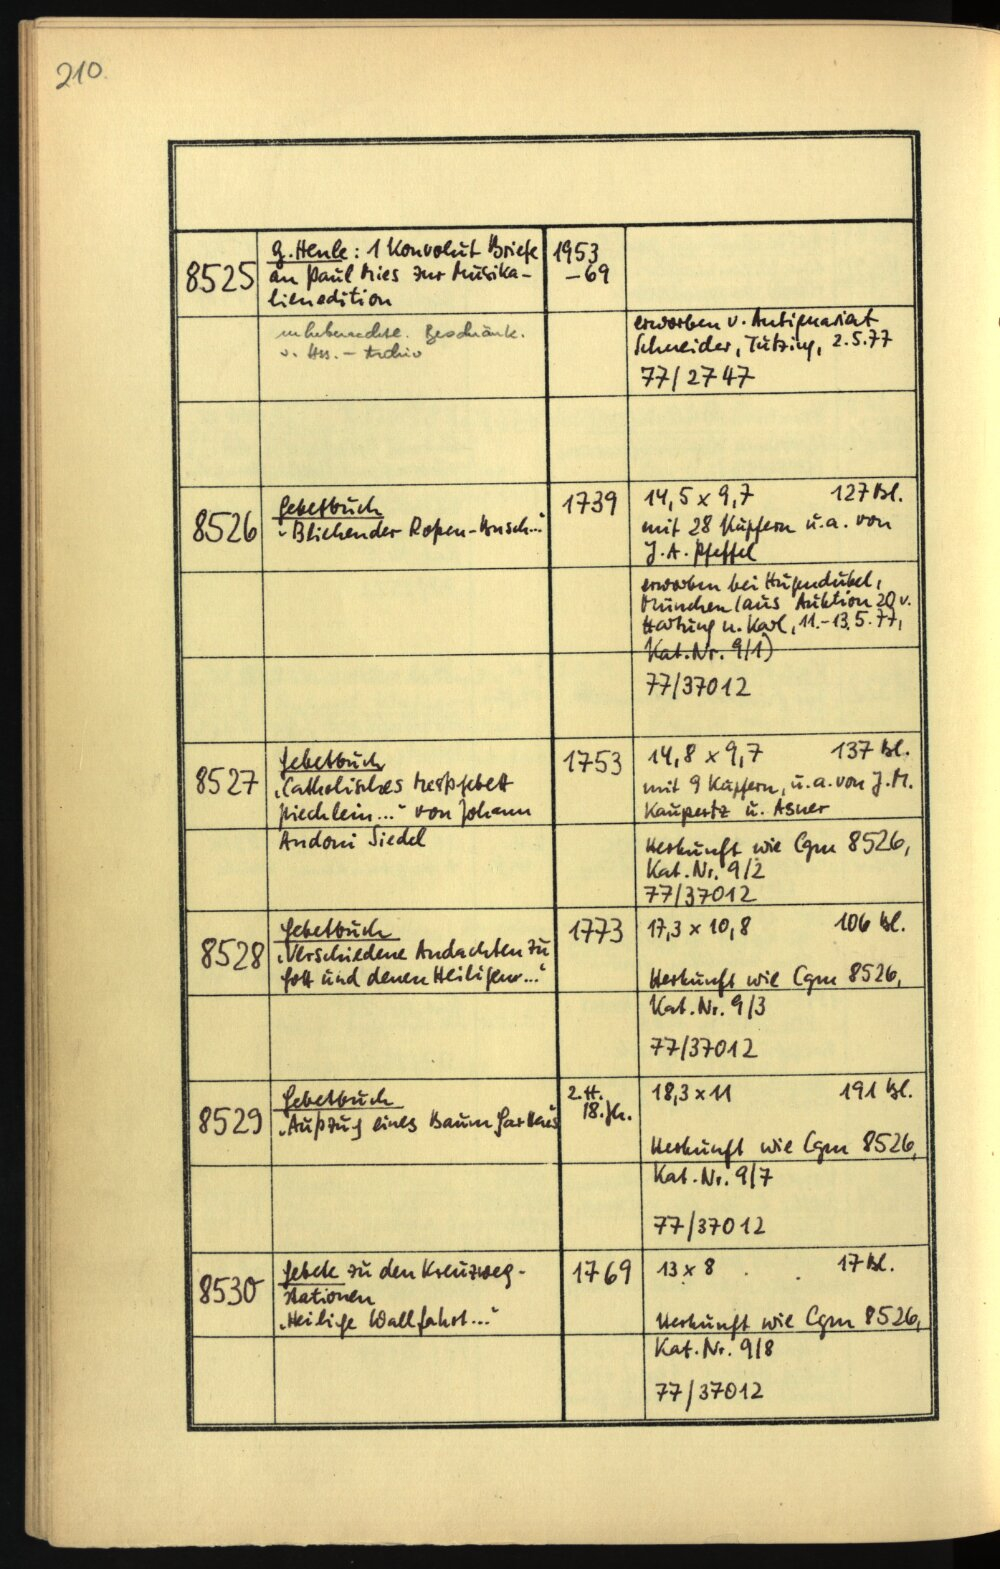 210.
8525
G. Henle: 1 Konvolut Briefe
an Paul Mies zur Musika-
lienedition
1953
-69
urheberrechtl. Beschränk.
v. Hss. - Archiv
erworben v. Antiquariat
Schneider, Tutzing, 2.5.77
77/2747
8526
Gebetbuch
"Bliehender Roßen-Busch..."
1739
14,5 x 9,7 127 Bl.
mit 28 Kupfern u.a. von
J.A. Pfeffel
erworben bei Hugendubel,
München (aus Auktion 20 v.
Hartung u. Karl, 11.-13.5.77,
Kat.Nr. 9/1)
77/37012
8527
Gebetbuch
"Catholisches Meßgebett
piechlein..." von Johann
Andoni Siedel
1753
14,8 x 9,7 137 Bl.
mit 9 Kupfern, u.a. von J.M.
Kaupertz u. Asner
Herkunft wie Cgm 8526,
Kat.Nr. 9/2
77/37012
8528
Gebetbuch
"Verschiedene Andachten zu
Gott und denen Heiligenr..."
1773
17,3 x 10,8 106 Bl.
Herkunft wie Cgm 8526,
Kat.Nr. 9/3
77/37012
8529
Gebetbuch
"Außzug eines Baum
2.H.
18.Jh.
18,3 x 11 191 Bl.
Herkunft wie Cgm 8526,
Kat.Nr. 9/7
77/37012
8530
Gebete zu den Kreuzweg-
stationen
"Heilige Wallfahrt..."
1769
13 x 8 17 Bl.
Herkunft wie Cgm 8526,
Kat.Nr. 9/8
77/37012